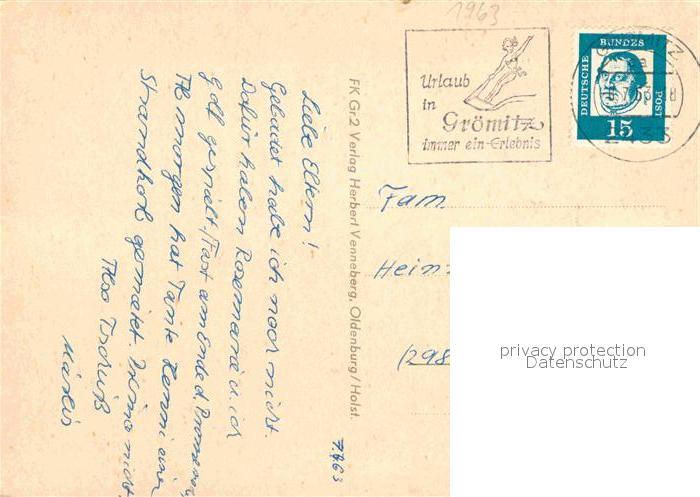 1963
Urlaub
in
Grömitz
immer ein Erlebnis
DEUTSCHE
BUNDES
POST
15
2433
Liebe Eltern!
Gebadet habe ich noch nicht.
Dafür haben Rosemarie u. ich
Golf gespielt. Fast am Ende d. Promenade
Heute morgen hat Tante Henni einen
Strandkorb gemietet. Prima nicht
Also Tschüß
7.7.63
FK Gr2 Verlag Herbert Venneberg, Oldenburg/Holst.
Fam.
Hein
(298
privacy protection
Datenschutz